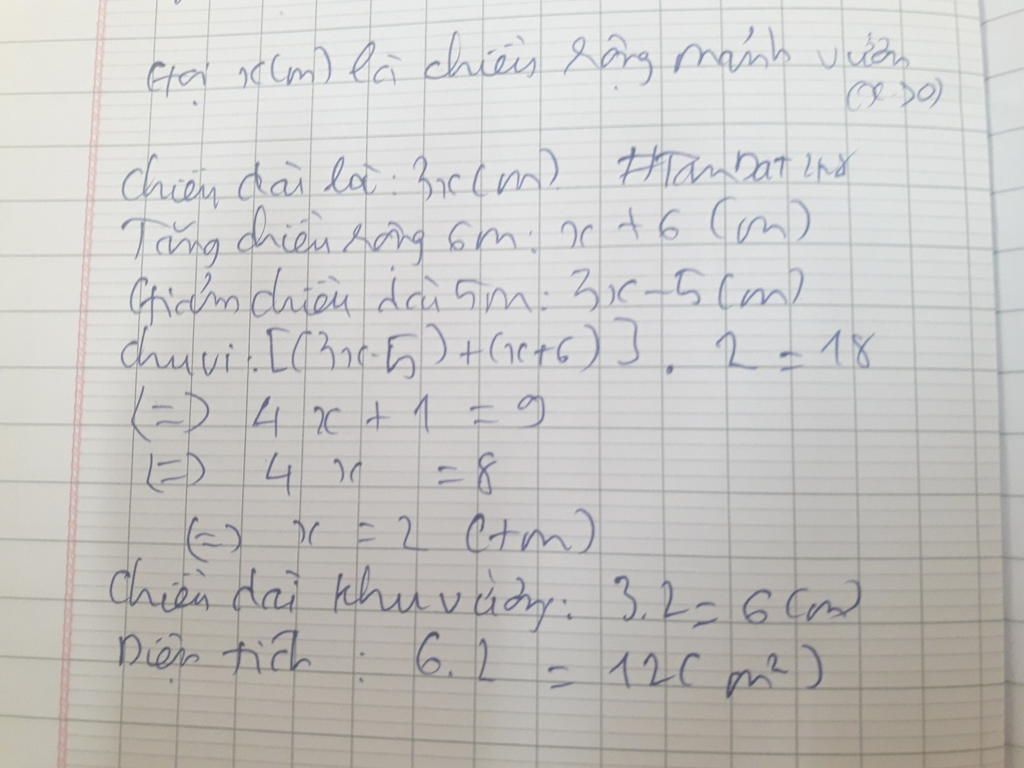 Gọi x(m) là chiều rộng mảnh vườn
(x>0)
Chiều dài là: 3x(m) #TamDat2k8
Tăng chiều rộng 6m: x + 6 (m)
Giảm chiều dài 5m: 3x-5(m)
chu vi: [(3x-5)+(x+6)] . 2 = 18
(=) 4x + 1 = 9
(=) 4x = 8
(=) x = 2 (tm)
Chiều dài khu vườn: 3.2= 6(m)
Diện tích : 6.2 = 12(m²)